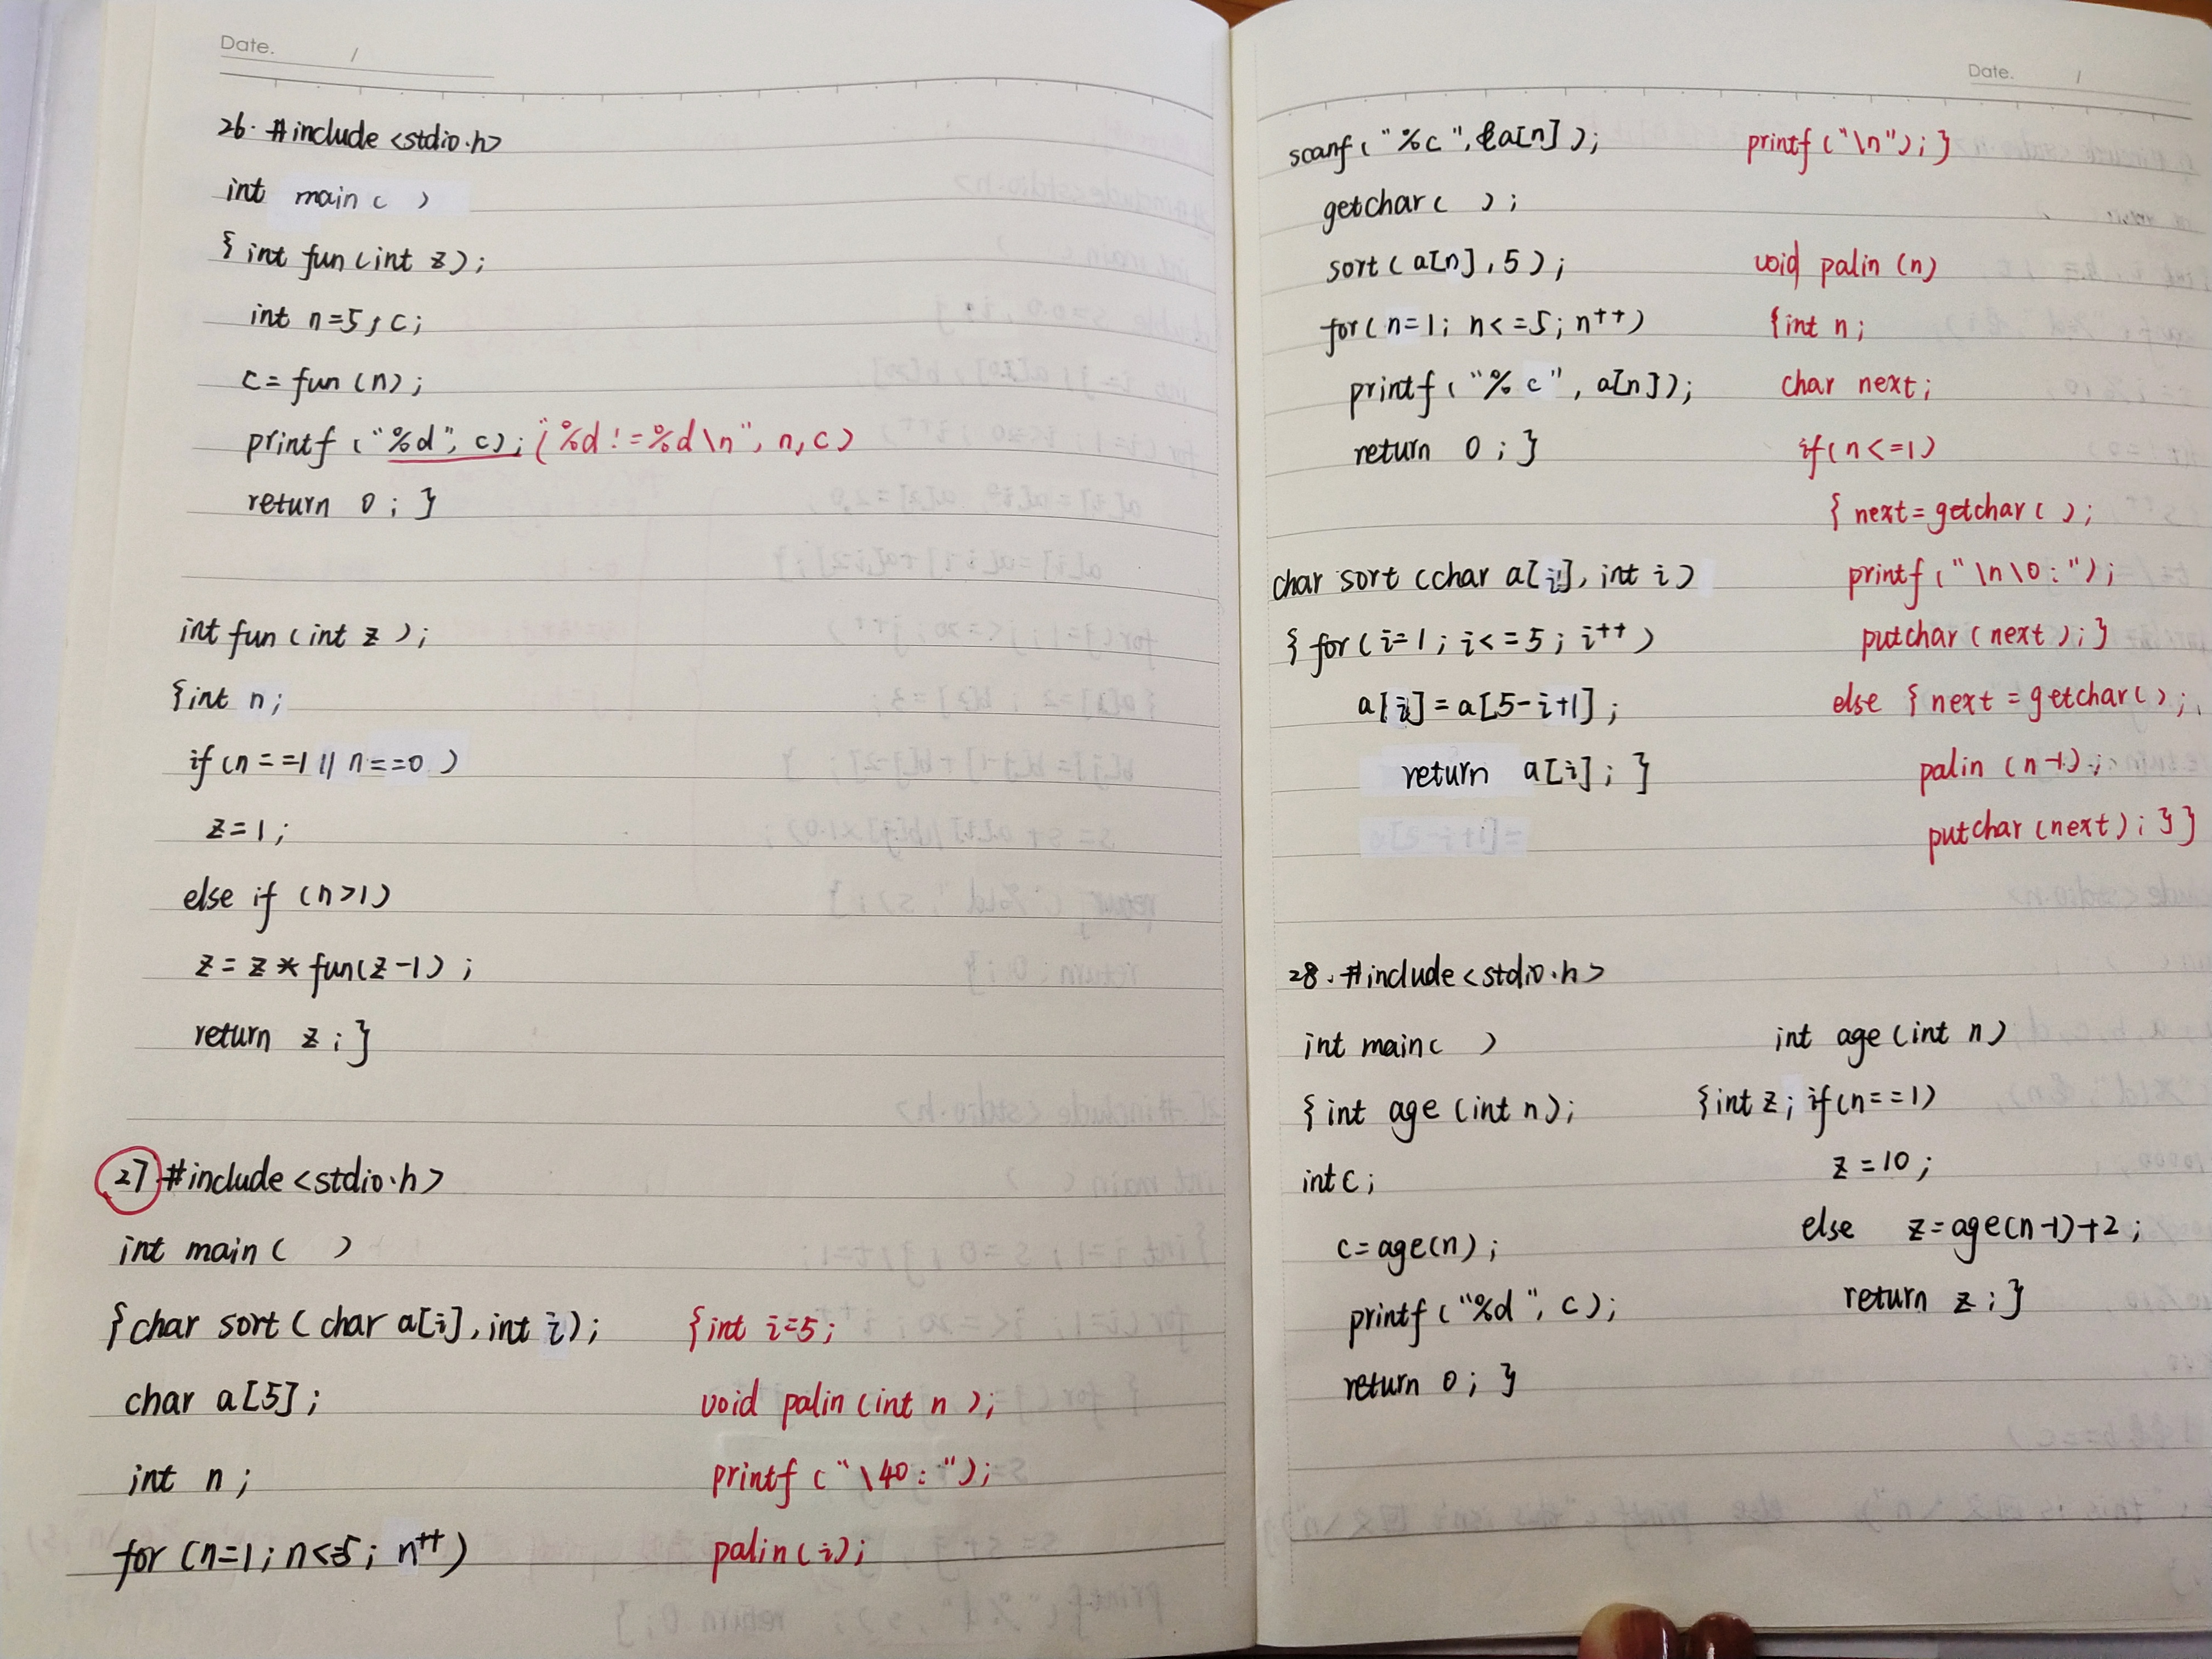 Date. /
26. #include <stdio.h>
int main( )
{int fun(int z);
int n=5,c;
c=fun(n);
printf("%d",c); ("%d!=%d\n", n,c)
return 0;}
int fun(int z);
{int n;
if(n==1||n==0)
z=1;
else if (n>1)
z=z*fun(z-1);
return z;}
27.#include<stdio.h>
int main( )
{char sort(char a[i],int i);
char a[5];
int n;
for(n=1;n<=5;n++)
{int i=5;
void palin(int n);
printf("\40:");
palin(i);
Date. /
scanf("%c",&a[n]);
getchar( );
sort(a[n],5);
for(n=1;n<=5;n++)
printf("%c",a[n]);
return 0;}
char sort(char a[i],int i)
{for(i=1;i<=5;i++)
a[i]=a[5-i+1];
return a[i];}
printf("\n");}
void palin(n)
{int n;
char next;
if(n<=1)
{next=getchar( );
printf("\n\0:");
putchar(next);}
else {next=getchar( );
palin(n-1);
putchar(next);}}
28.#include<stdio.h>
int main( )
{int age(int n);
int c;
c=age(n);
printf("%d",c);
return 0;}
int age(int n)
{int z; if(n==1)
z=10;
else z=age(n-1)+2;
return z;}